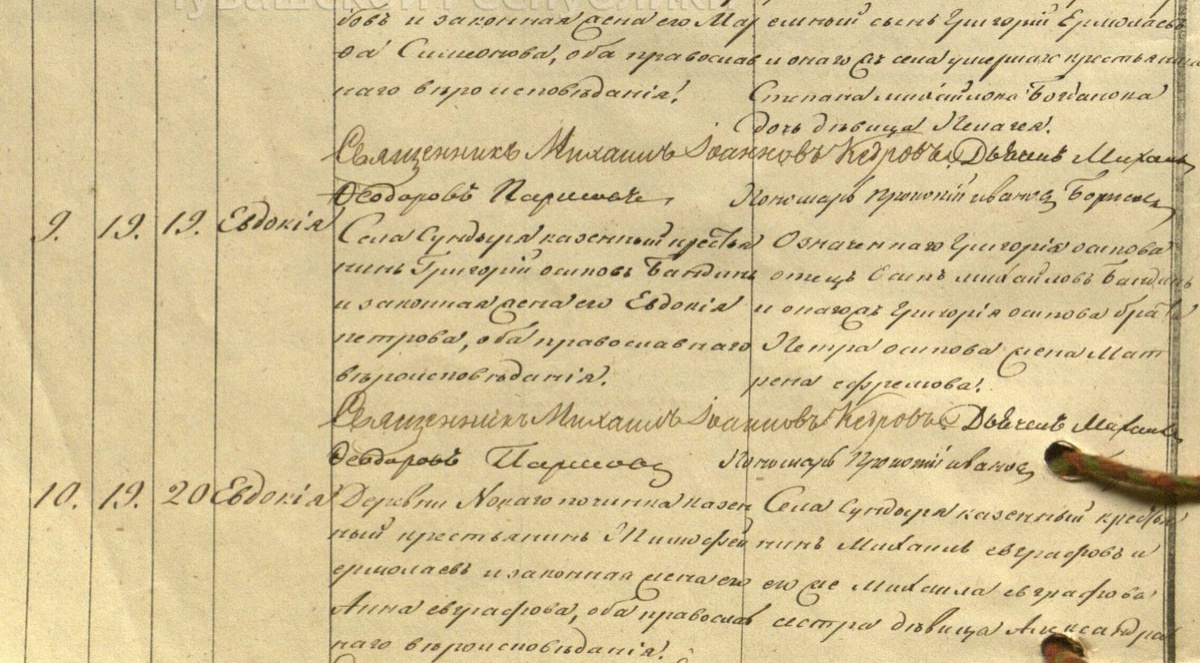 Чувашской Республики
бовъ и законная жена его Мар емный сынъ Григорій Ермолаевъ
ѳа Симеонова, оба православ и онагожъ села умершаго крестьянина
наго вѣроисповѣданія. Степана Михайлова Богданова
дочь дѣвица Пелагея.
Священникъ Михаилъ Іоанновъ Кедровъ. Дьячекъ Михаилъ
Ѳеодоровъ Пономарь Прокопій Иванов Борисов
9. 19. 19. Евдокія Села Сундыря казенный кресть Означеннаго Григорія Осипова
янинъ Григорій Осиповъ Бандинъ отецъ Осипъ Михайловъ Бандинъ
и законная жена его Евдокія и онагожъ Григорія Осипова брата
Петрова, оба православнаго Петра Осипова жена Мат
вѣроисповѣданія. рена Ефремова.
Священникъ Михаилъ Іоанновъ Кедровъ. Дьячекъ Михаилъ
Ѳеодоровъ Пономарь Прокопій Иванов
10. 19. 20 Евдокія Деревни Новаго починка казен Села Сундыря казенный кресть
ный крестьянинъ Тимофей янинъ Михаилъ Евграфовъ и
Ермолаевъ и законная жена его его же Михаила Евграфова
Анна Евграфова, оба православ сестра дѣвица Александра
наго вѣроисповѣданія.